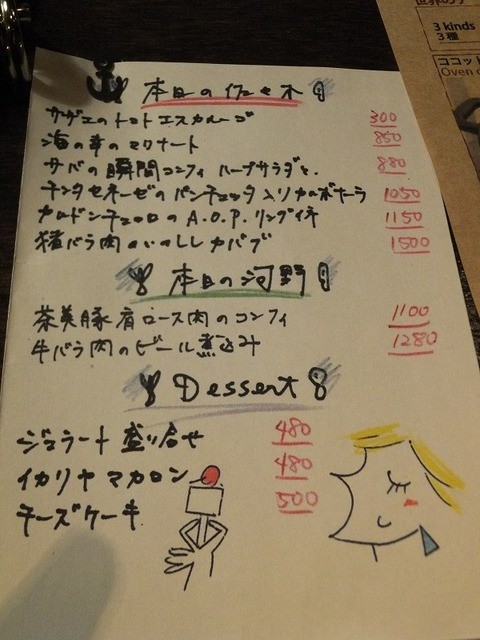 世界の
3 kinds
3種
ココット
Oven c
本日の佐々木
サザエのトマトエスカルゴ 300
海の幸のマリナート 850
サバの瞬間コンフィ ハーブサラダと. 880
チンタセネーゼのパンチェッタ入りカルボナーラ 1050
カルドンチェロの A.O.P. リングイネ 1150
猪バラ肉のいのししカバブ 1500
本日の河野
茶美豚肩ロース肉のコンフィ 1100
牛バラ肉のビール煮込み 1280
Dessert
ジェラート盛り合せ 480
イカリヤマカロン 480
チーズケーキ 500